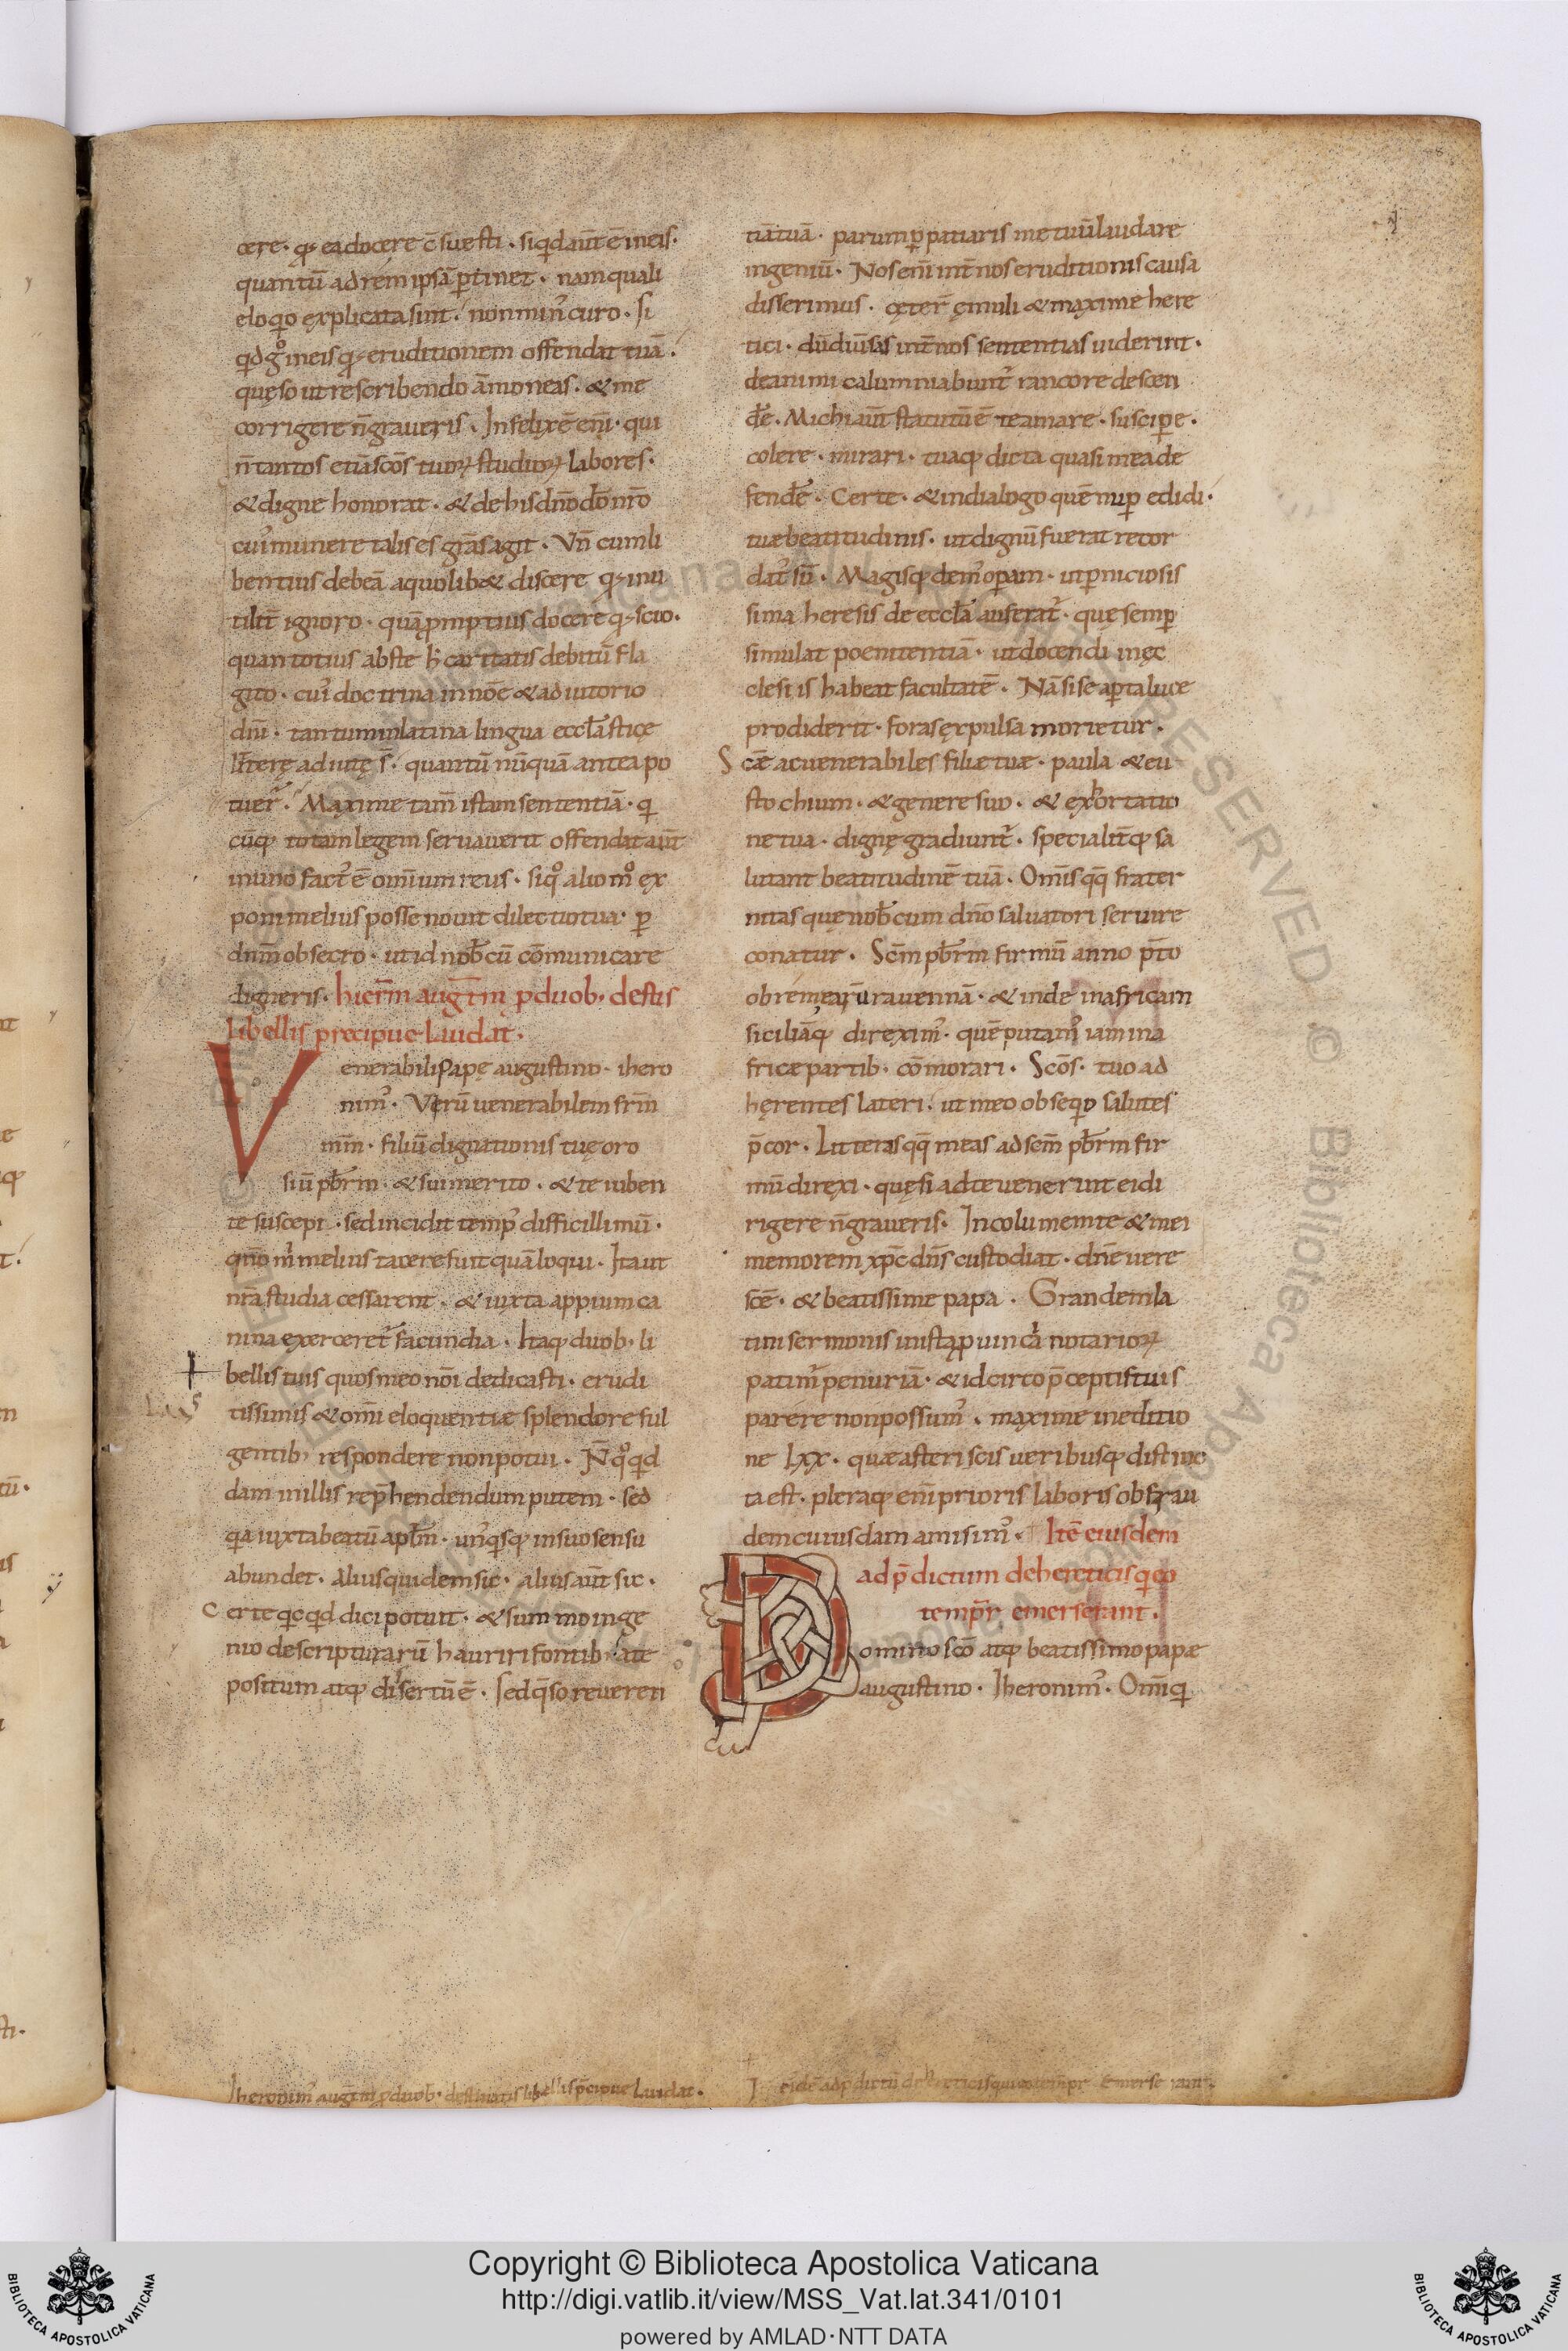 cere · q̄ ea docere c̄suesti · siqd aut̄ ē in eis ·
quantū ad rem ipsā p̄tinet · nam quali
eloqio explicata sint · non min᾽ curo · Si
qd gͦ in eis q̄ eruditionem offendat tuā ·
quęso ut rescribendo āmoneas · & me
corrigere n̄ graueris · Infelix ē eni᾽ · qui
n̄ tantos etiā scōs tuoꝝ studioꝝ labores ·
& digne honorat · & de his dn̄o dō nr̄o
cui᾽ munere talis es grās agit · Vn̄ cum li
bentius debeā a quolib& discere q̄ inu
tilit̄ ignoro · quā pmptius docere q̄ scio ·
quanto tius abs te h᾽ caritatis debitū fla
gito · cui᾽ doctrina in nōe & adiutorio
dnī · tantum in latina lingua eccl̄asticę
litterę adiutę s̄ · quantū nūquā antea po
tuer̄ · Maxime tam̄ istam sententiā · qi
cūq totam legem seruauerit offendat aut̄
in uno fact᾽ ē omnium reus · siqͦ alio mͦ ex
poni melius posse nouit dilectio tua · p̄
dnm̄ obsecro · ut id nob̄ cū cōmunicare
digneris · hier̄m aug̅tm̅ p duob · destis
libellis precipue laudat ·
Venerabili Papę augustino · ihero
nim᾽ · Verū uenerabilem frm̄
mm̄ · filiū dignationis tuę oro
siū pb̄rm · & sui merito · & te iuben
te suscepi · sed incidit temp᾽ difficillimū ·
qn̄o m᾽ melius tacere fuit quā loqui · Ita ut
nr̄a studia cessarent · & iuxta appium ca
nina exerceret᾽ facundia · Itaq duob · li
bellis tuis quos meo nōi dedicasti · erudi
tissimis & omī eloquentiæ splendore ful
gentib᾽ respondere non potui · N̄ qͦ qd
dam in illis rep̄hendendum putem · sed
qa iuxta beatū apl̄m · un᾽qsq in suo sensu
abundet · alius quidem sic · alius aut̄ sic ·
Certe qcqd dici potuit · & summo inge
nio de scripturarū hauriri fontib᾽ · a te
positum atq disertū ē · Sed q̄so reueren
tiā tuā · parump patiaris me tuū laudare
ingeniū · Nos eni᾽ int̄ nos eruditionis causa
disserimus · cęter̄ ęmuli & maxime here
tici · dū diūsas int̄ nos sententias uiderint ·
de animi calumniabunt᾽ rancore descen
dr̄e · Michi aut̄ statutū ē te amare · suscipe ·
colere · mirari · tuaq dicta quasi mea de
fendr̄e · Certe · & in dialogo quē nup edidi ·
tuæ beatitudinis · ut dignū fuerat recor
dat᾽ sū · Magisq dem᾽ opam · ut pniciosis
sima heresis de eccl̄a auferat᾽ · quę semp
simulat poenitentiā · ut docendi in ęc
clesiis habeat facultatē · Nā si se apta luce
prodiderit · foras expulsa morietur ·
Scæ ac uenerabiles filiæ tuæ · paula & eu
stochium · & genere suo · & exhortatio
ne tua · digne gradiunt᾽ · specialit̄q sa
lutant beatitudinē tuā · Omīs qq̄ frater
nitas que nob̄cum dn̄o saluatori seruire
conatur · Scm̄ pb̄rm firmū anno p̄t̄o
ob rem earū rauennā · & inde in africam
siciliāq direxim᾽ · quē putam᾽ iam in a
fricæ partib · cōmorari · Scōs · tuo ad
hęrentes lateri · ut meo obseqio salutes
p̄cor · Litteras qq̄ meas ad scm̄ pb̄rm fir
mū direxi · quę si ad te uenerint ei di
rigere n̄ graueris · Incolumem te & mei
memorem xp̄c dn̄s custodiat · dn̄e uere
scē · & beatissime papa · Grandem la
tini sermonis in ista puincia notarioꝝ
patim᾽ penuriā · & idcirco p̄ceptis tuis
parere non possum᾽ · maxime in editio
ne lxx · quæ asteriscis ueribusq distinc
ta est · pleraq eni᾽ prioris laboris ob frau
dem cuiusdam amisim᾽ · Itē eiusdem
ad p̄dictum de hereticis qi eo
tempr̄ emerserunt ·
Domino scō atq beatissimo papæ
augustino · Iheronim᾽ · Omīq
Iheronim᾽ augtm̄ p duob · destinatis libellis p̄cipue laudat ·
I eidē ad p̄dictū de hereticis qui eo tempr emerserunt ·
Copyright © Biblioteca Apostolica Vaticana
http://digi.vatlib.it/view/MSS_Vat.lat.341/0101
powered by AMLAD·NTT DATA
BIBLIOTECA APOSTOLICA VATICANA
BIBLIOTECA APOSTOLICA VATICANA